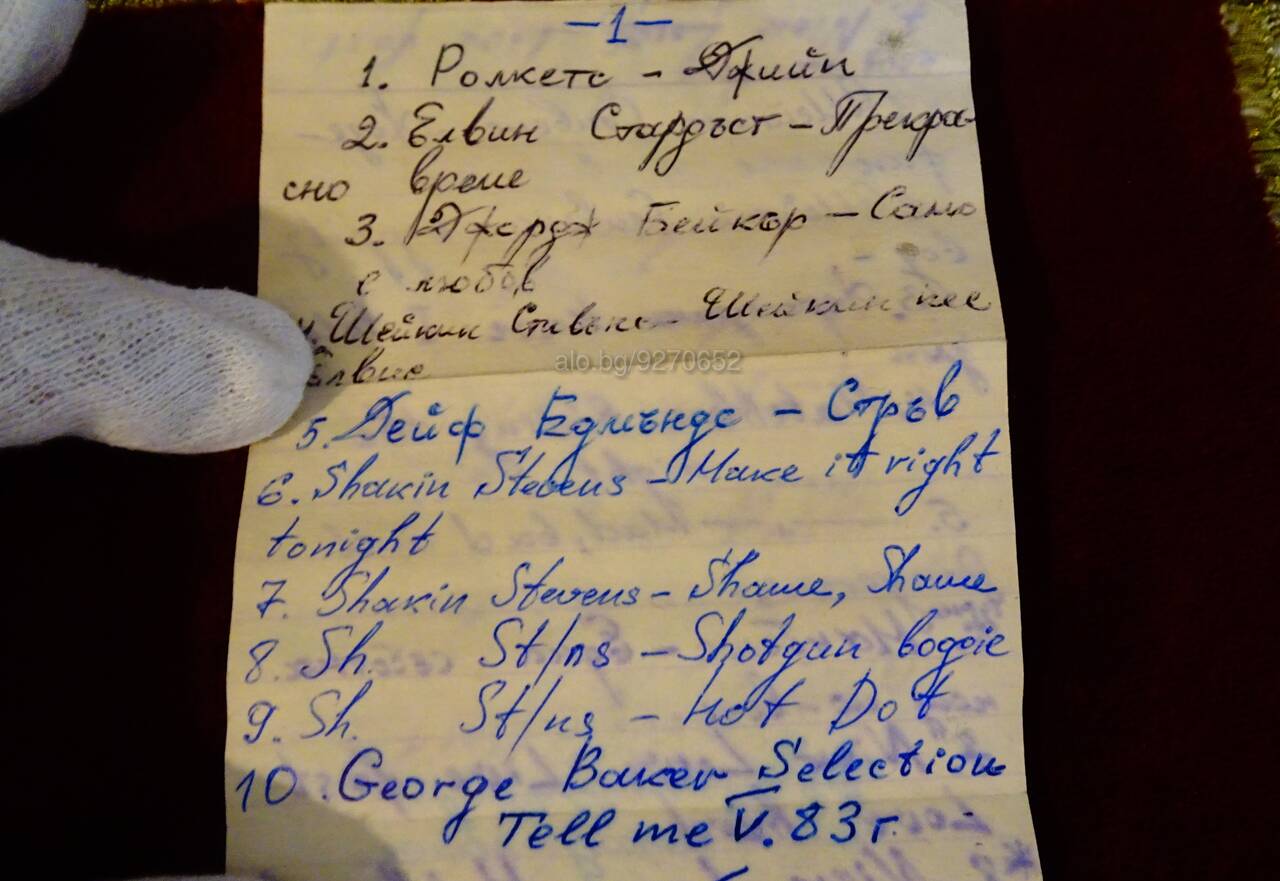 —1—
1. Ролкетс – Джийп
2. Елвин Стардъст – Прекра-
сно време
3. Джордж Бейкър – Само
с любов
4. Шейкин Стивънс – Шейкин пее
Елвис
alo.bg/9270652
5. Дейф Едмъндс – Стръв
6. Shakin Stevens – Make it right
tonight
7. Shakin Stevens – Shame, Shame
8. Sh. St/ns – Shotgun boggie
9. Sh. St/ns – Hot Dot
10. George Baker Selection
Tell me V. 83 г.